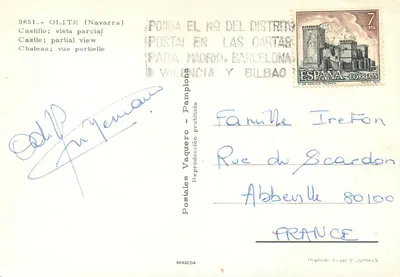 9851.- OLITE (Navarra)
Castillo; vista parcial
Castle; partial view
Chateau; vue partielle
PONGA EL Nº DEL DISTRITO
POSTAL EN LAS CARTAS
PARA MADRID, BARCELONA,
VALENCIA Y BILBAO
7
PTA
ESPAÑA CORREOS
Postales Vaquero - Pamplona
Reproducción prohibida
Famille Ireton
Rue de Scardon
Abbeville 80100
FRANCE
Depósito Legal